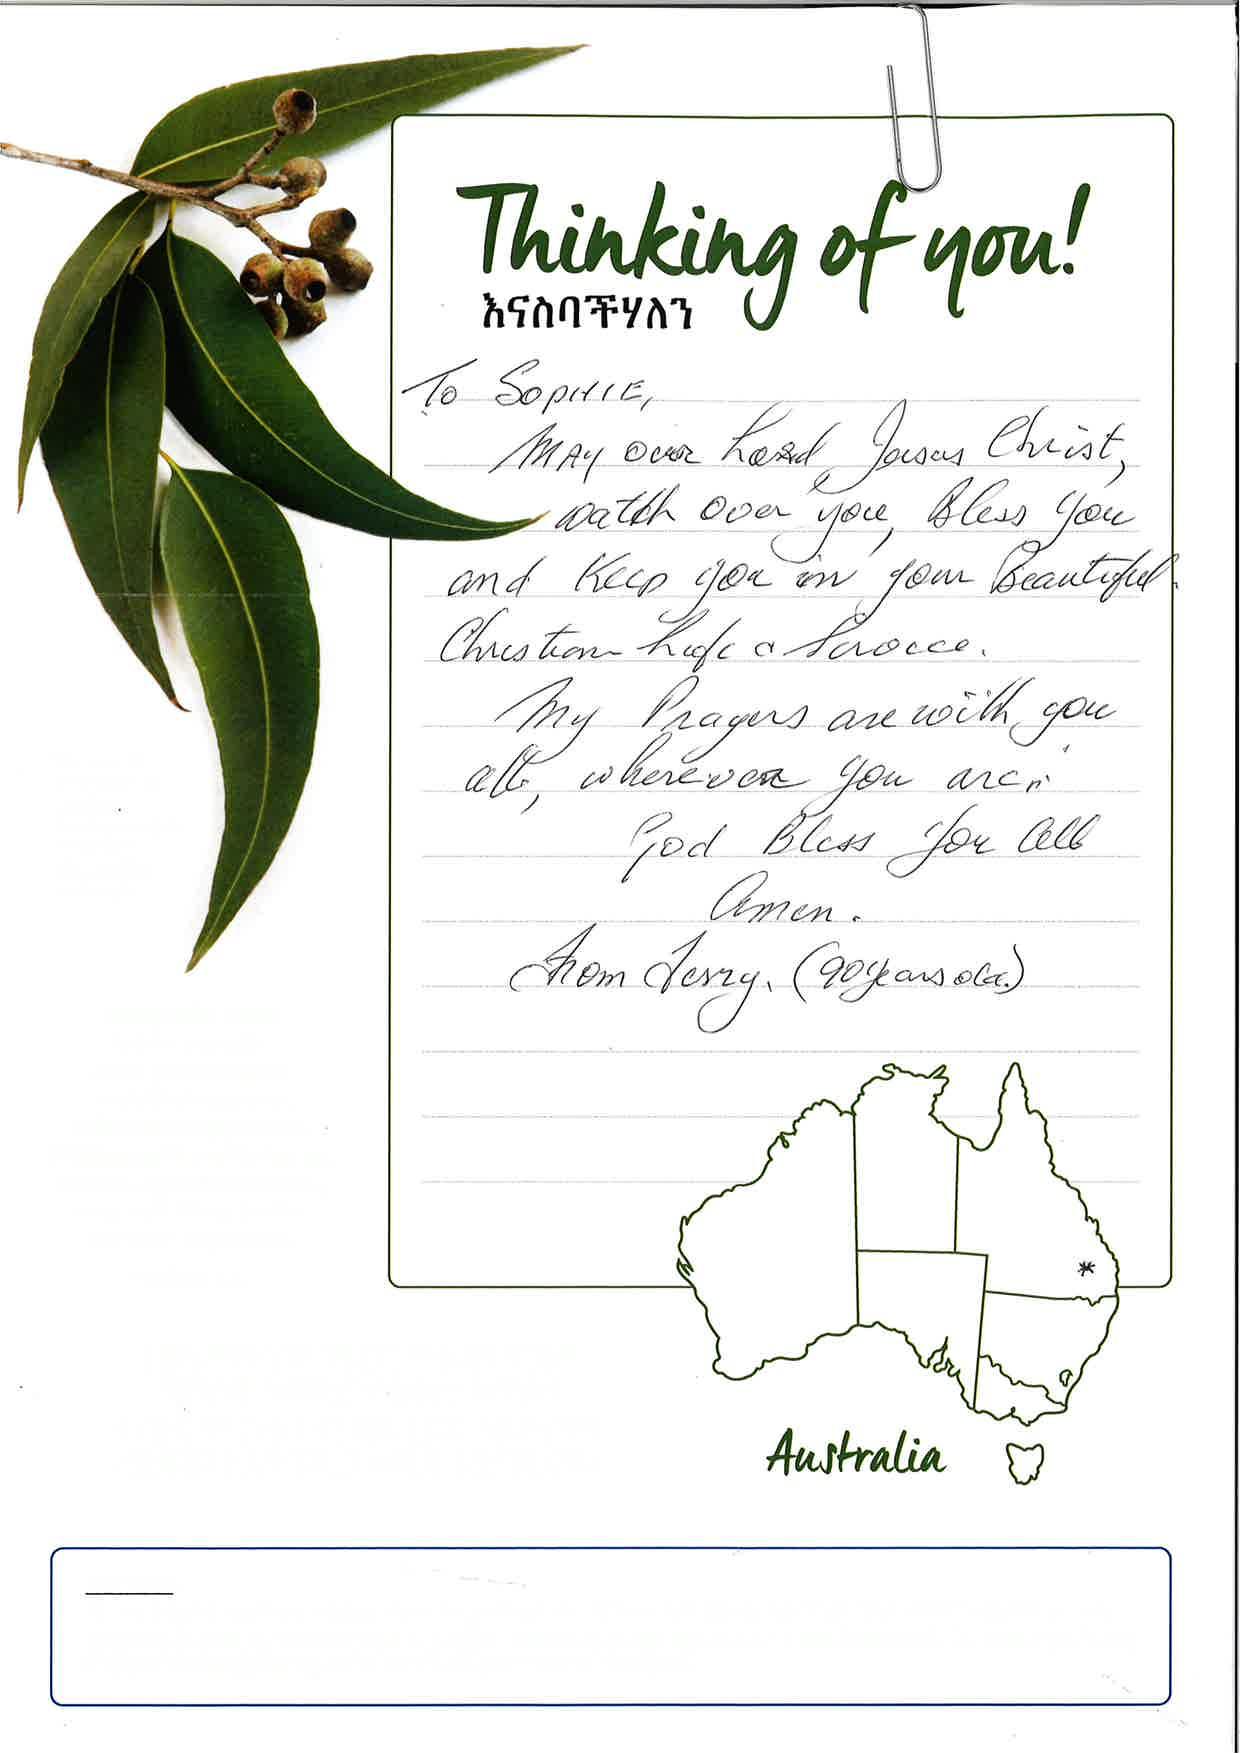 Thinking of you!
እናስባችሃለን
To Sophie,
May our Lord, Jesus Christ,
watch over you, Bless You
and Keep you in your Beautiful
Christian Life &
My Prayers are with you
all, wherever you are.
God Bless You All
Amen.
From Terry. (90 years old.)
Australia